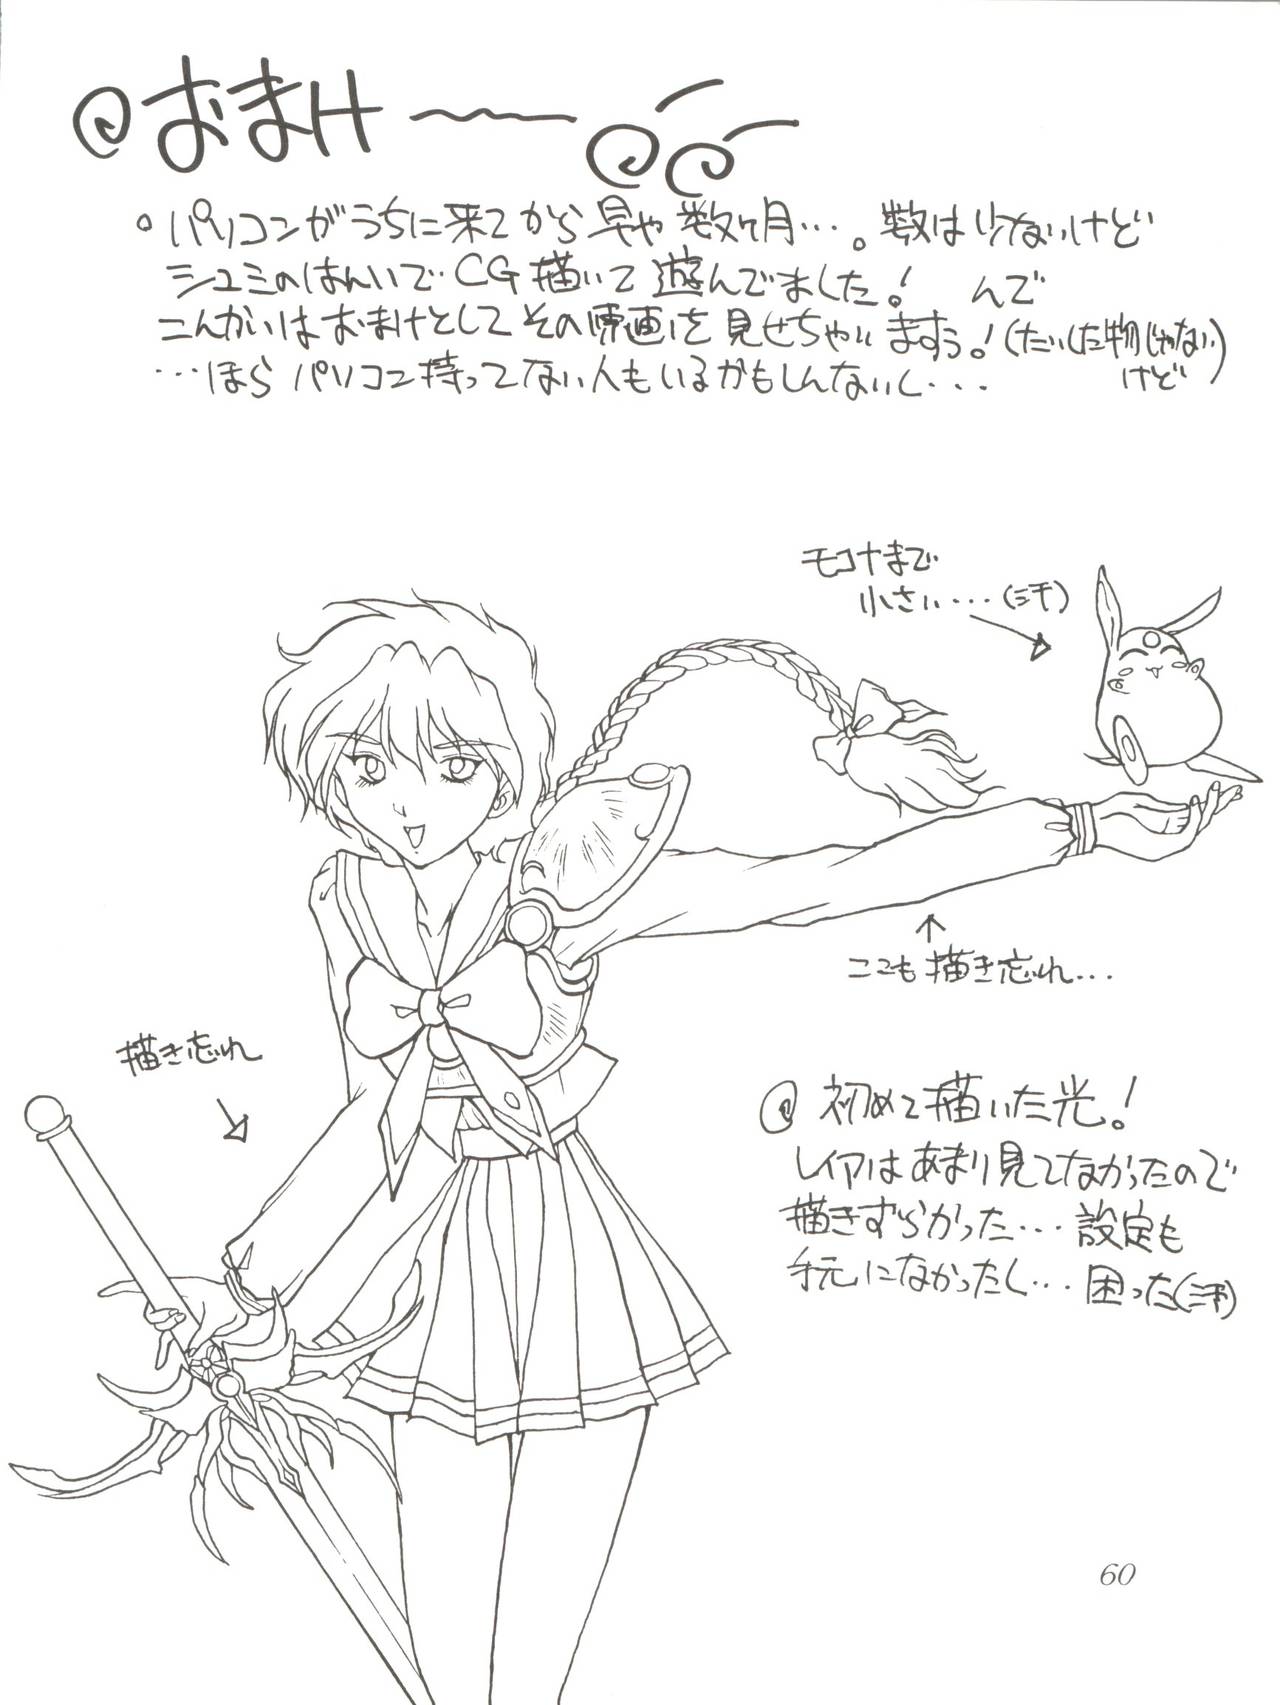 @おまけ〜〜
。パソコンがうちに来てから早や数ヶ月…。数は少ないけど
シュミのはんいでCG描いて遊んでました！んで
こんかいはおまけとしてその原画を見せちゃいますぅ！(たいした物じゃない
けど)
…ほらパソコン持ってない人もいるかもしんないし…
モコナまで
小さい…(汗)
ここも描き忘れ…
描き忘れ
@初めて描いた光！
レイアはあまり見てなかったので
描きずらかった…設定も
手元になかったし…困った(汗)
60